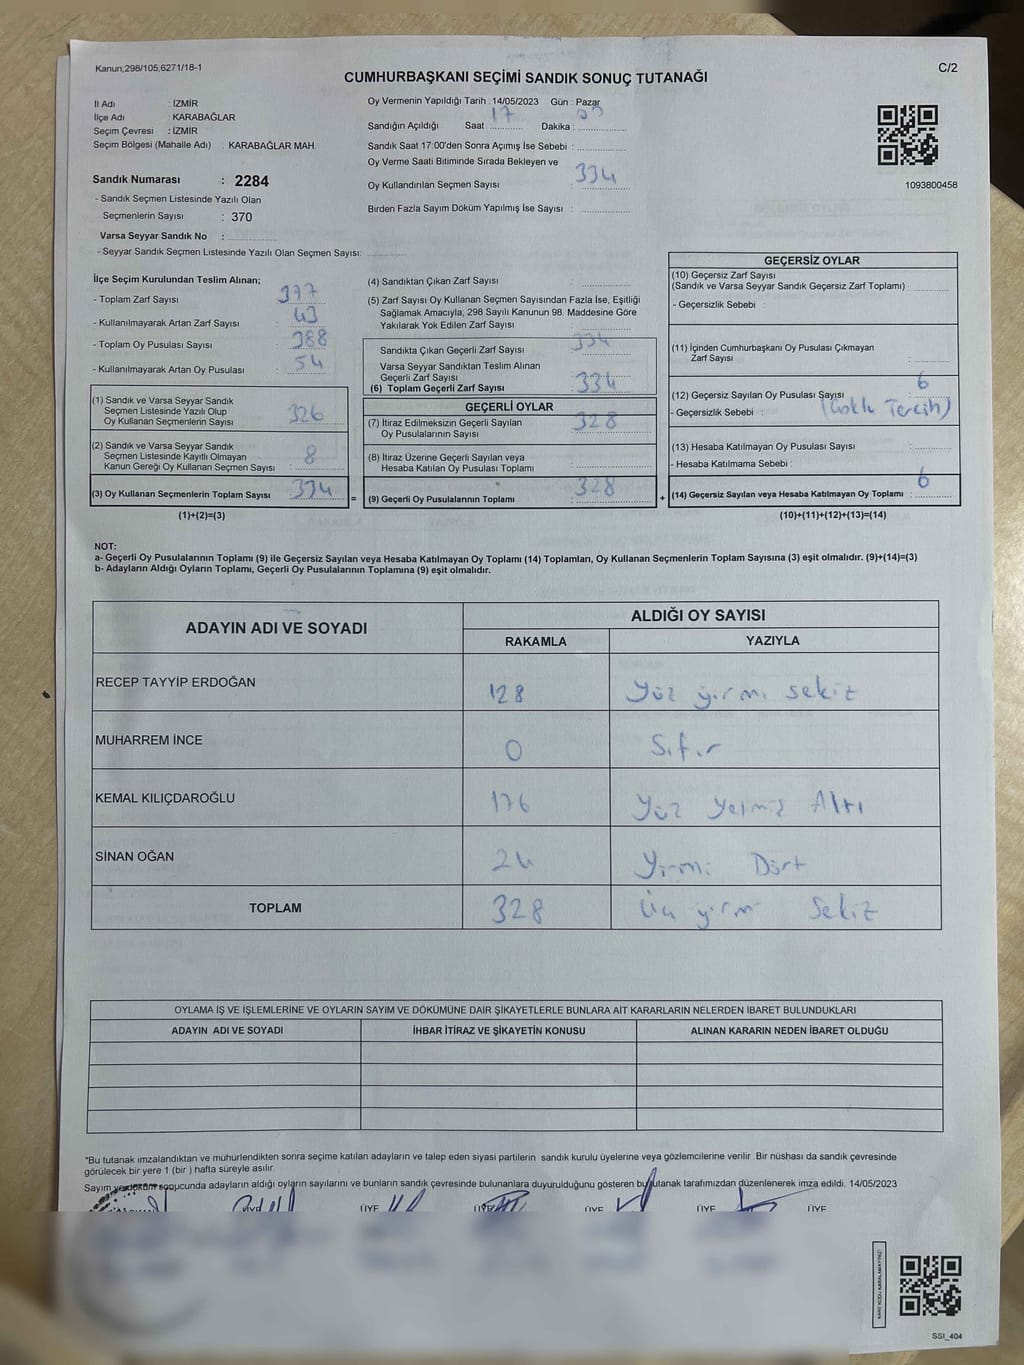 Kanun;298/105,6271/18-1
C/2
CUMHURBAŞKANI SEÇİMİ SANDIK SONUÇ TUTANAĞI
İl Adı : İZMİR
İlçe Adı : KARABAĞLAR
Seçim Çevresi : İZMİR
Seçim Bölgesi (Mahalle Adı) : KARABAĞLAR MAH.
Sandık Numarası : 2284
- Sandık Seçmen Listesinde Yazılı Olan
Seçmenlerin Sayısı : 370
Varsa Seyyar Sandık No :
- Seyyar Sandık Seçmen Listesinde Yazılı Olan Seçmen Sayısı:
Oy Vermenin Yapıldığı Tarih : 14/05/2023 Gün : Pazar
Sandığın Açıldığı Saat 17 Dakika :
Sandık Saat 17:00'den Sonra Açımış İse Sebebi :
Oy Verme Saati Bitiminde Sırada Bekleyen ve
Oy Kullandırılan Seçmen Sayısı : 334
Birden Fazla Sayım Döküm Yapılmış İse Sayısı :
1093800458
İlçe Seçim Kurulundan Teslim Alınan;
- Toplam Zarf Sayısı : 377
- Kullanılmayarak Artan Zarf Sayısı : 43
- Toplam Oy Pusulası Sayısı : 388
- Kullanılmayarak Artan Oy Pusulası : 54
(1) Sandık ve Varsa Seyyar Sandık
Seçmen Listesinde Yazılı Olup
Oy Kullanan Seçmenlerin Sayısı : 326
(2) Sandık ve Varsa Seyyar Sandık
Seçmen Listesinde Kayıtlı Olmayan
Kanun Gereği Oy Kullanan Seçmen Sayısı : 8
(3) Oy Kullanan Seçmenlerin Toplam Sayısı : 334 =
(1)+(2)=(3)
(4) Sandıktan Çıkan Zarf Sayısı :
(5) Zarf Sayısı Oy Kullanan Seçmen Sayısından Fazla İse, Eşitliği
Sağlamak Amacıyla, 298 Sayılı Kanunun 98. Maddesine Göre
Yakılarak Yok Edilen Zarf Sayısı :
Sandıkta Çıkan Geçerli Zarf Sayısı : 334
Varsa Seyyar Sandıktan Teslim Alınan
Geçerli Zarf Sayısı :
(6) Toplam Geçerli Zarf Sayısı : 334
GEÇERLİ OYLAR
(7) İtiraz Edilmeksizin Geçerli Sayılan
Oy Pusulalarının Sayısı : 328
(8) İtiraz Üzerine Geçerli Sayılan veya
Hesaba Katılan Oy Pusulası Toplamı :
(9) Geçerli Oy Pusulalarının Toplamı : 328 +
GEÇERSİZ OYLAR
(10) Geçersiz Zarf Sayısı
(Sandık ve Varsa Seyyar Sandık Geçersiz Zarf Toplamı) :
- Geçersizlik Sebebi :
(11) İçinden Cumhurbaşkanı Oy Pusulası Çıkmayan
Zarf Sayısı :
(12) Geçersiz Sayılan Oy Pusulası Sayısı : 6
- Geçersizlik Sebebi : (Çoklu Tercih)
(13) Hesaba Katılmayan Oy Pusulası Sayısı :
- Hesaba Katılmama Sebebi :
(14) Geçersiz Sayılan veya Hesaba Katılmayan Oy Toplamı : 6
(10)+(11)+(12)+(13)=(14)
NOT:
a- Geçerli Oy Pusulalarının Toplamı (9) ile Geçersiz Sayılan veya Hesaba Katılmayan Oy Toplamı (14) Toplamları, Oy Kullanan Seçmenlerin Toplam Sayısına (3) eşit olmalıdır. (9)+(14)=(3)
b- Adayların Aldığı Oyların Toplamı, Geçerli Oy Pusulalarının Toplamına (9) eşit olmalıdır.
ADAYIN ADI VE SOYADI ALDIĞI OY SAYISI
RAKAMLA YAZIYLA
RECEP TAYYİP ERDOĞAN 128 Yüz yirmi sekiz
MUHARREM İNCE 0 Sıfır
KEMAL KILIÇDAROĞLU 176 Yüz Yetmiş Altı
SİNAN OĞAN 24 Yirmi Dört
TOPLAM 328 Üç yirmi Sekiz
OYLAMA İŞ VE İŞLEMLERİNE VE OYLARIN SAYIM VE DÖKÜMÜNE DAİR ŞİKAYETLERLE BUNLARA AİT KARARLARIN NELERDEN İBARET BULUNDUKLARI
ADAYIN ADI VE SOYADI İHBAR İTİRAZ VE ŞİKAYETİN KONUSU ALINAN KARARIN NEDEN İBARET OLDUĞU
*Bu tutanak imzalandıktan ve mühürlendikten sonra seçime katılan adayların ve talep eden siyasi partilerin sandık kurulu üyelerine veya gözlemcilerine verilir. Bir nüshası da sandık çevresinde
görülecek bir yere 1 (bir ) hafta süreyle asılır.
Sayım ve döküm sonucunda adayların aldığı oyların sayılarını ve bunların sandık çevresinde bulunanlara duyurulduğunu gösteren bu tutanak tarafımızdan düzenlenerek imza edildi. 14/05/2023
ÜYE ÜYE ÜYE ÜYE ÜYE ÜYE
SSI_404